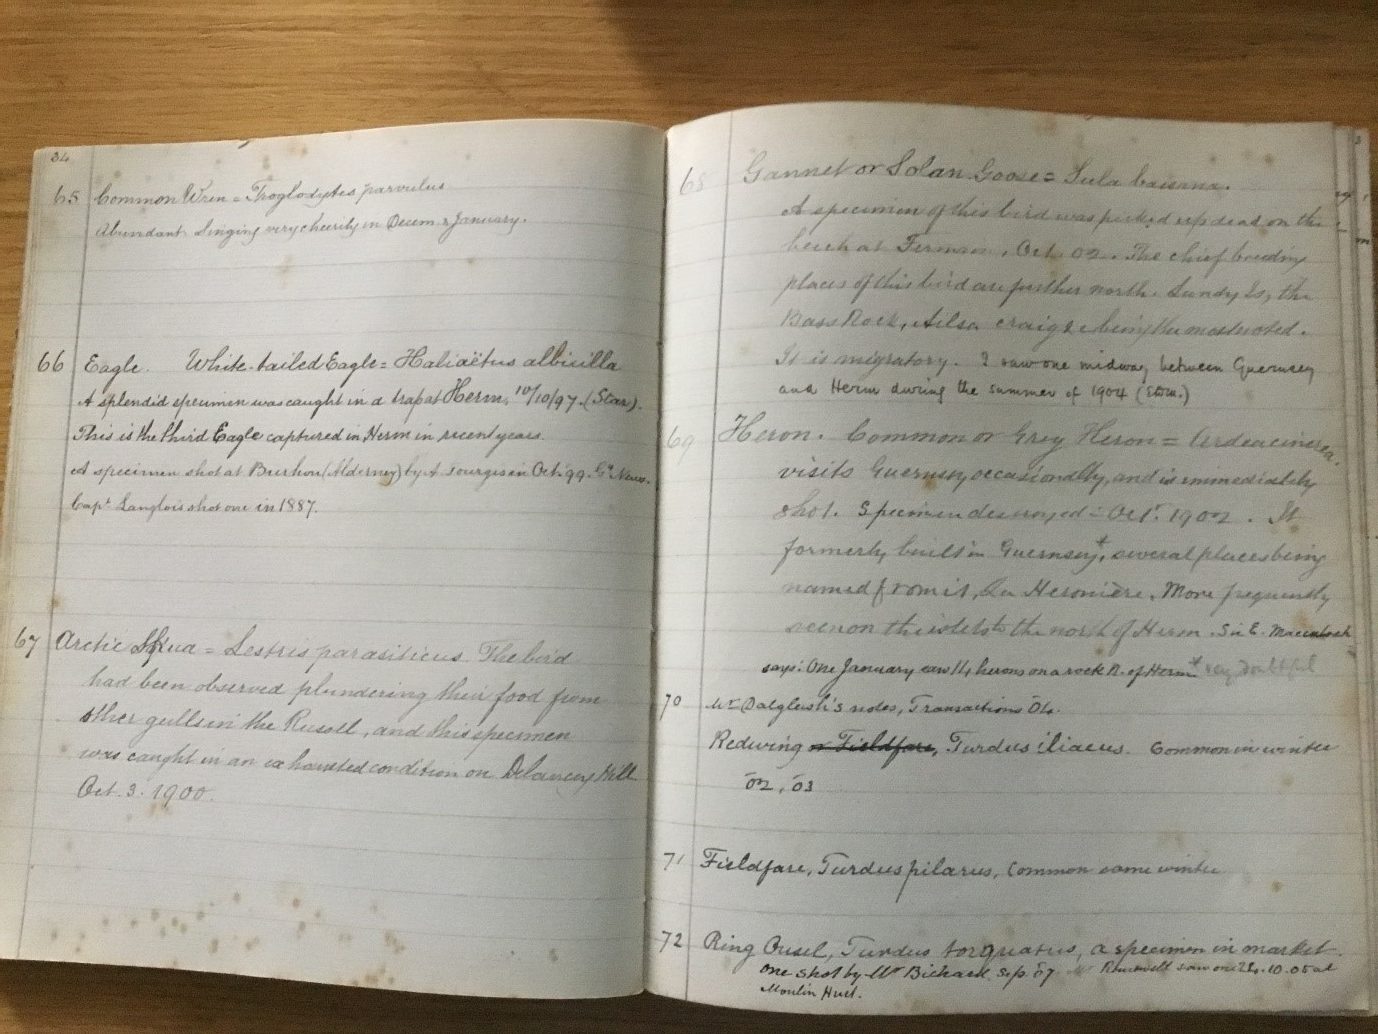 34
65 Common Wren = Troglodytes parvulus
Abundant. Singing very cheerily in Decem. & January.
66 Eagle. White-tailed Eagle = Haliaëtus albicilla
A splendid specimen was caught in a trap at Herm, 10/10/97. (Star).
This is the third Eagle captured in Herm in recent years.
A specimen shot at Burhou (Alderney) by A. Sourges in Oct. 99. Gt. News.
Capt Langlois shot one in 1887.
67 Arctic Skua = Lestris parasiticus. The bird
had been observed plundering their food from
other gulls in the Russell, and this specimen
was caught in an exhausted condition on Delancey Hill
Oct. 3. 1900.
68 Gannet or Solan Goose = Sula bassana.
A specimen of this bird was picked up dead on the
beach at Fermain, Oct. 02. The chief breeding
places of this bird are further north. Lundy Is, the
Bass Rock, Ailsa craig &c being the most noted.
It is migratory. I saw one midway between Guernsey
and Herm during the summer of 1904
69 Heron. Common or Grey Heron = Ardea cinerea.
visits Guernsey occasionally, and is immediately
shot. Specimen destroyed = Oct. 1902. It
formerly built in Guernsey*, several places being
named from it, La Heronière. More frequently
seen on the islets to the north of Herm. Sir E. Macculloch
says: One January saw 14 herons on a rock N. of Herm * very doubtful
70 Mr Dalgleish's notes, Transactions 04.
Redwing or Fieldfare, Turdus iliacus. Common in winter
02, 03
71 Fieldfare, Turdus pilarus, Common same winter
72 Ring Ousel, Turdus torquatus, a specimen in market.
One shot by Mr Bichard, Sep. 07 Mr Rousell saw one 24.10.05 at
Moulin Huet.